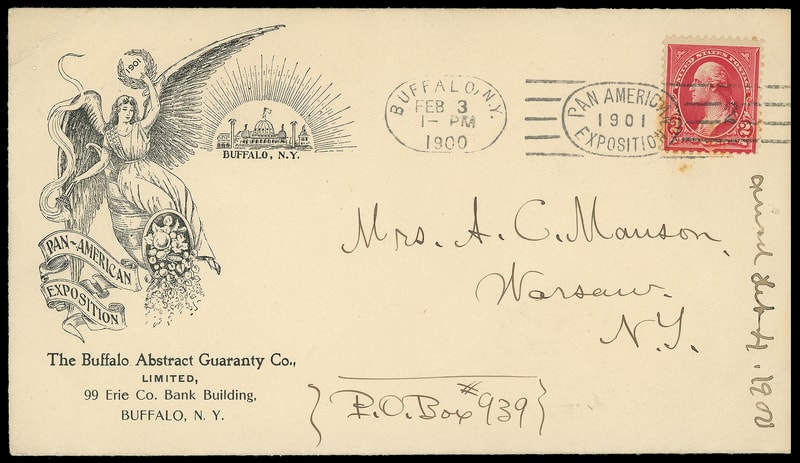 1901
BUFFALO, N.Y.
PAN-AMERICAN
EXPOSITION
The Buffalo Abstract Guaranty Co.,
LIMITED,
99 Erie Co. Bank Building,
BUFFALO, N. Y.
BUFFALO, N.Y.
FEB 3
1- PM
1900
PAN AMERICAN
1901
EXPOSITION
UNITED STATES POSTAGE
2 2
Mrs. A. C. Manson,
Warsaw.
N.Y.
{P.O. Box #939}
1900